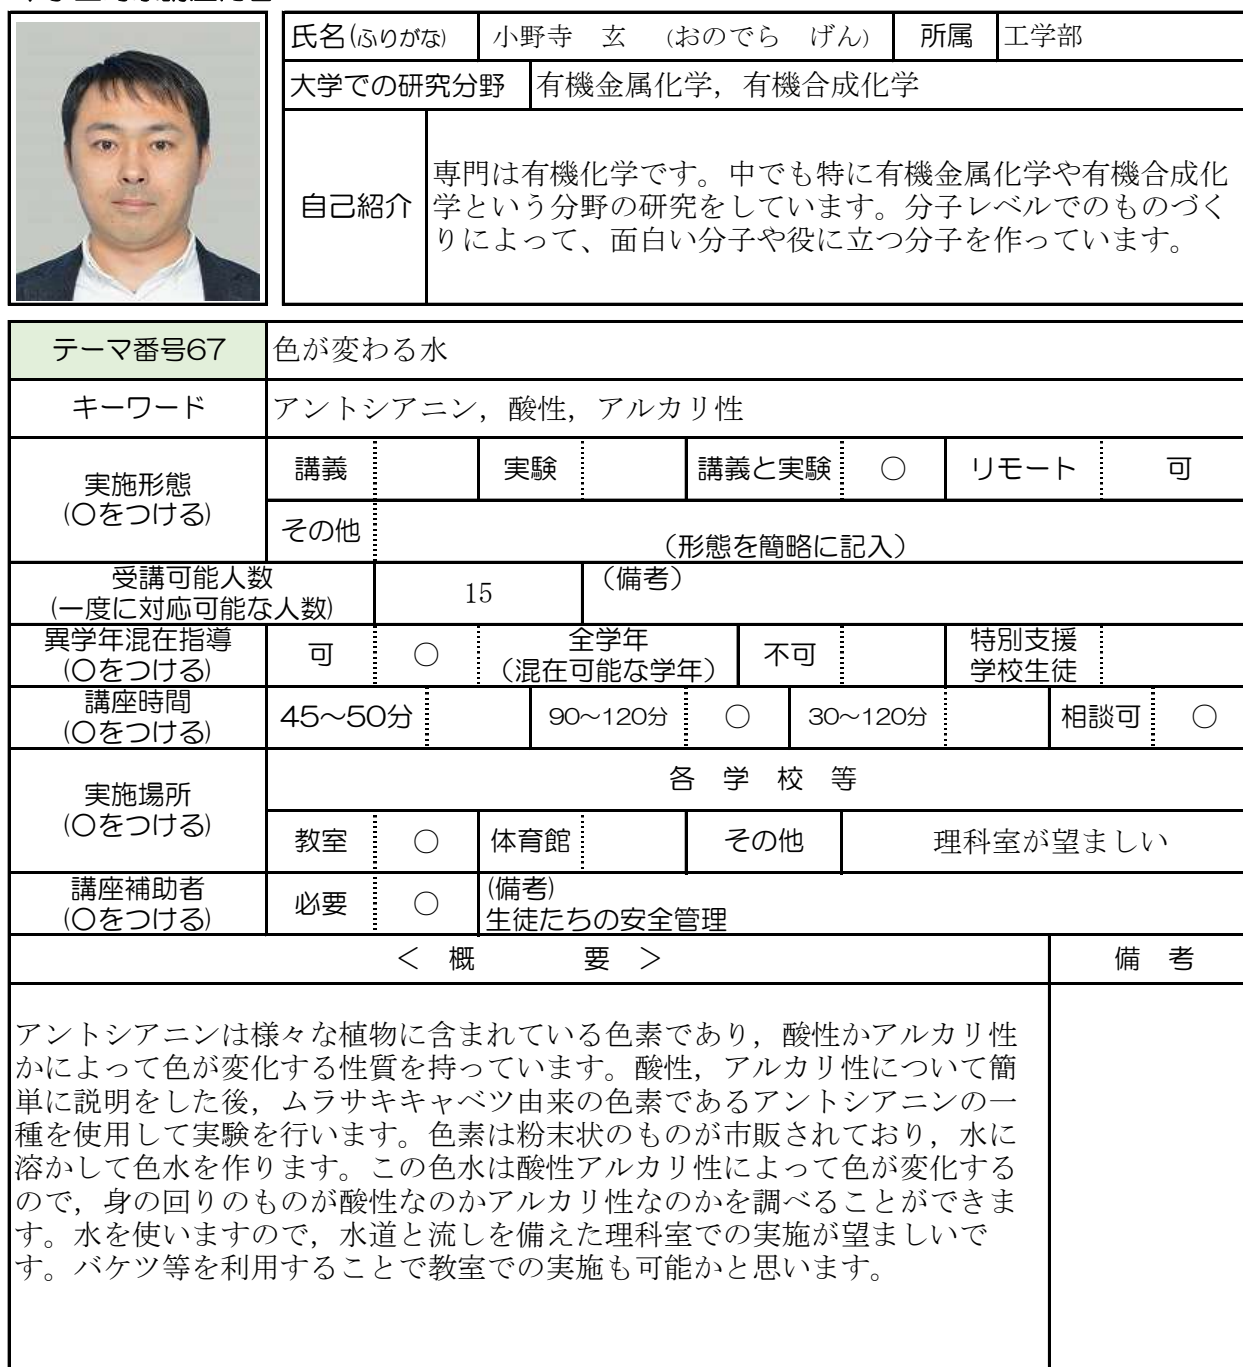 氏名(ふりがな) 小野寺 玄 (おのでら げん) 所属 工学部
大学での研究分野 有機金属化学，有機合成化学
自己紹介
専門は有機化学です。中でも特に有機金属化学や有機合成化
学という分野の研究をしています。分子レベルでのものづく
りによって、面白い分子や役に立つ分子を作っています。
テーマ番号67 色が変わる水
キーワード アントシアニン，酸性，アルカリ性
実施形態
(○をつける)
講義 実験 講義と実験 ○ リモート 可
その他 （形態を簡略に記入）
受講可能人数
(一度に対応可能な人数)
15 （備考）
異学年混在指導
(○をつける)
可 ○ 全学年
（混在可能な学年）
不可 特別支援
学校生徒
講座時間
(○をつける)
45～50分 90～120分 ○ 30～120分 相談可 ○
実施場所
(○をつける)
各 学 校 等
教室 ○ 体育館 その他 理科室が望ましい
講座補助者
(○をつける)
必要 ○ (備考)
生徒たちの安全管理
＜ 概 要 ＞ 備 考
アントシアニンは様々な植物に含まれている色素であり，酸性かアルカリ性
かによって色が変化する性質を持っています。酸性，アルカリ性について簡
単に説明をした後，ムラサキキャベツ由来の色素であるアントシアニンの一
種を使用して実験を行います。色素は粉末状のものが市販されており，水に
溶かして色水を作ります。この色水は酸性アルカリ性によって色が変化する
ので，身の回りのものが酸性なのかアルカリ性なのかを調べることができま
す。水を使いますので，水道と流しを備えた理科室での実施が望ましいで
す。バケツ等を利用することで教室での実施も可能かと思います。